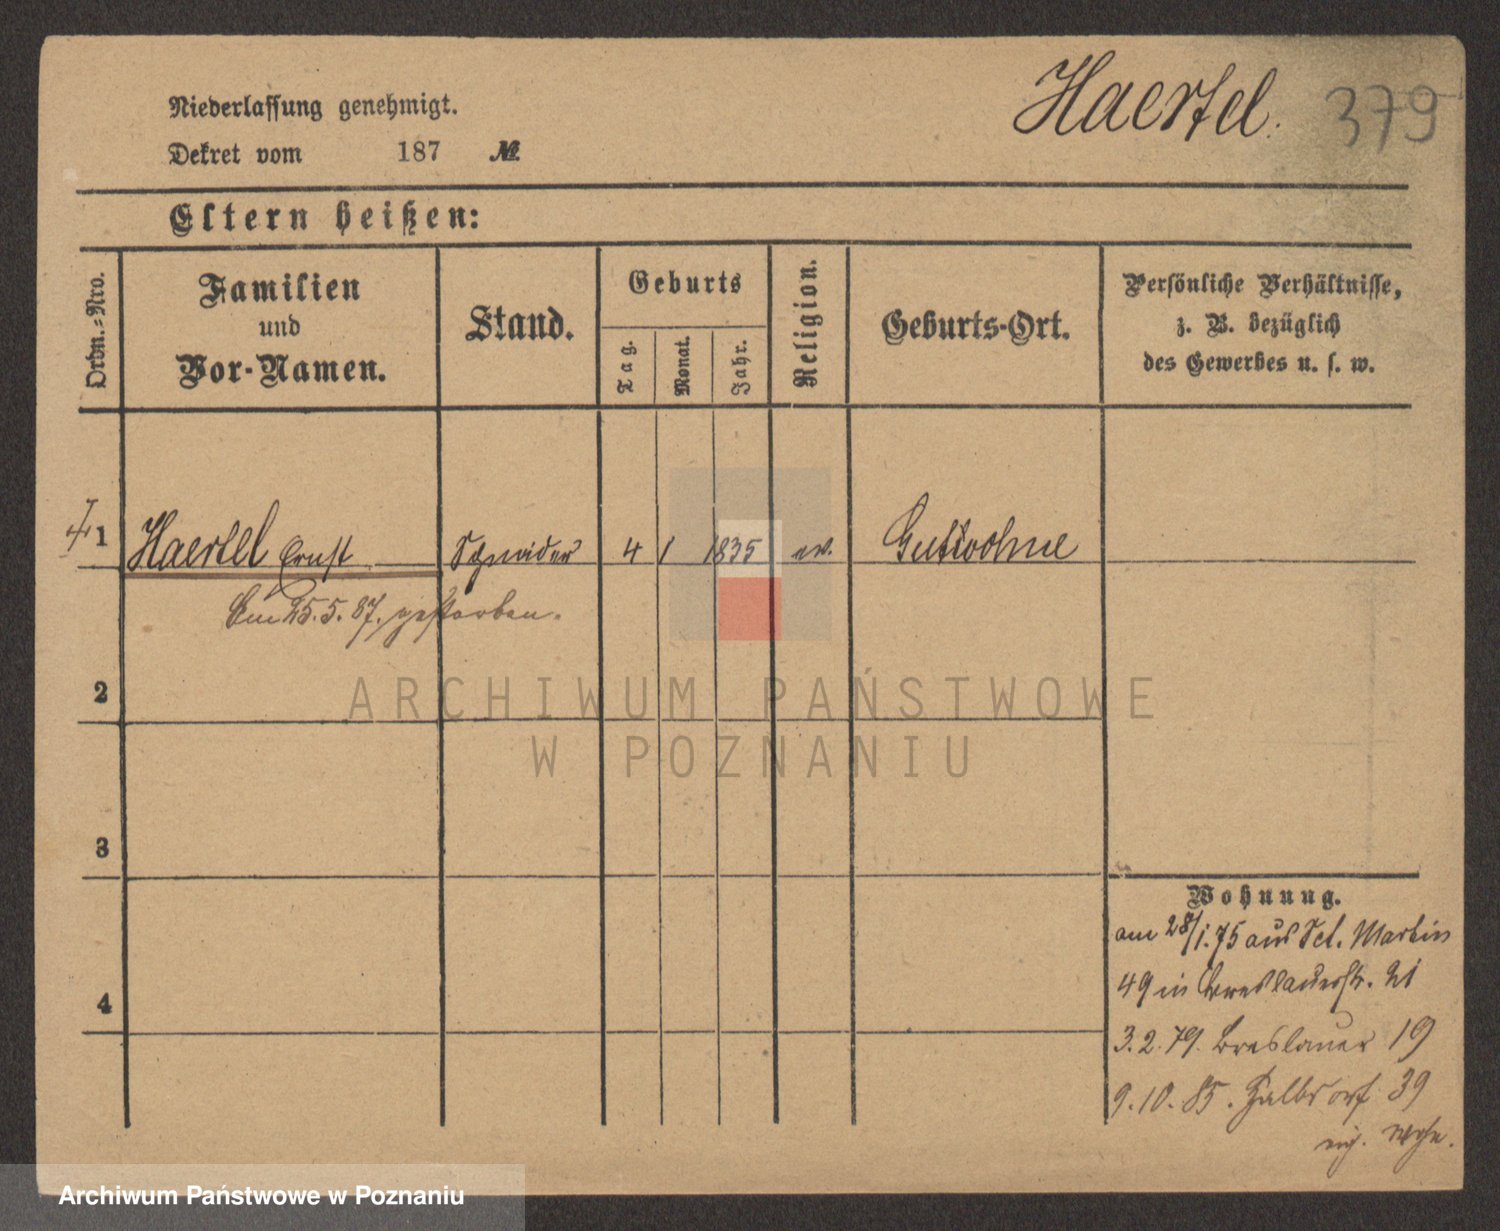 Haertel. 379
Niederlassung genehmigt.
Dekret vom 187 №
Eltern heißen:
Ordn.=Nro.
Familien
und
Vor-Namen.
Stand.
Geburts
Tag.
Monat.
Jahr.
Religion.
Geburts-Ort.
Persönliche Verhältnisse,
z. B. bezüglich
des Gewerbes u. s. w.
1 Haertel Ernst Schneider 4 1 1835 ev. Gutwohne
Am 25.5.87. gestorben.
2
3
4
Wohnung.
am 28/1.75 aus Sct. Martin
49 in Breslauerstr. 21
3.2.79. Breslauer 19
9.10.85. Halbdorf 39
eig. Wohn.
ARCHIWUM PAŃSTWOWE
W POZNANIU
Archiwum Państwowe w Poznaniu